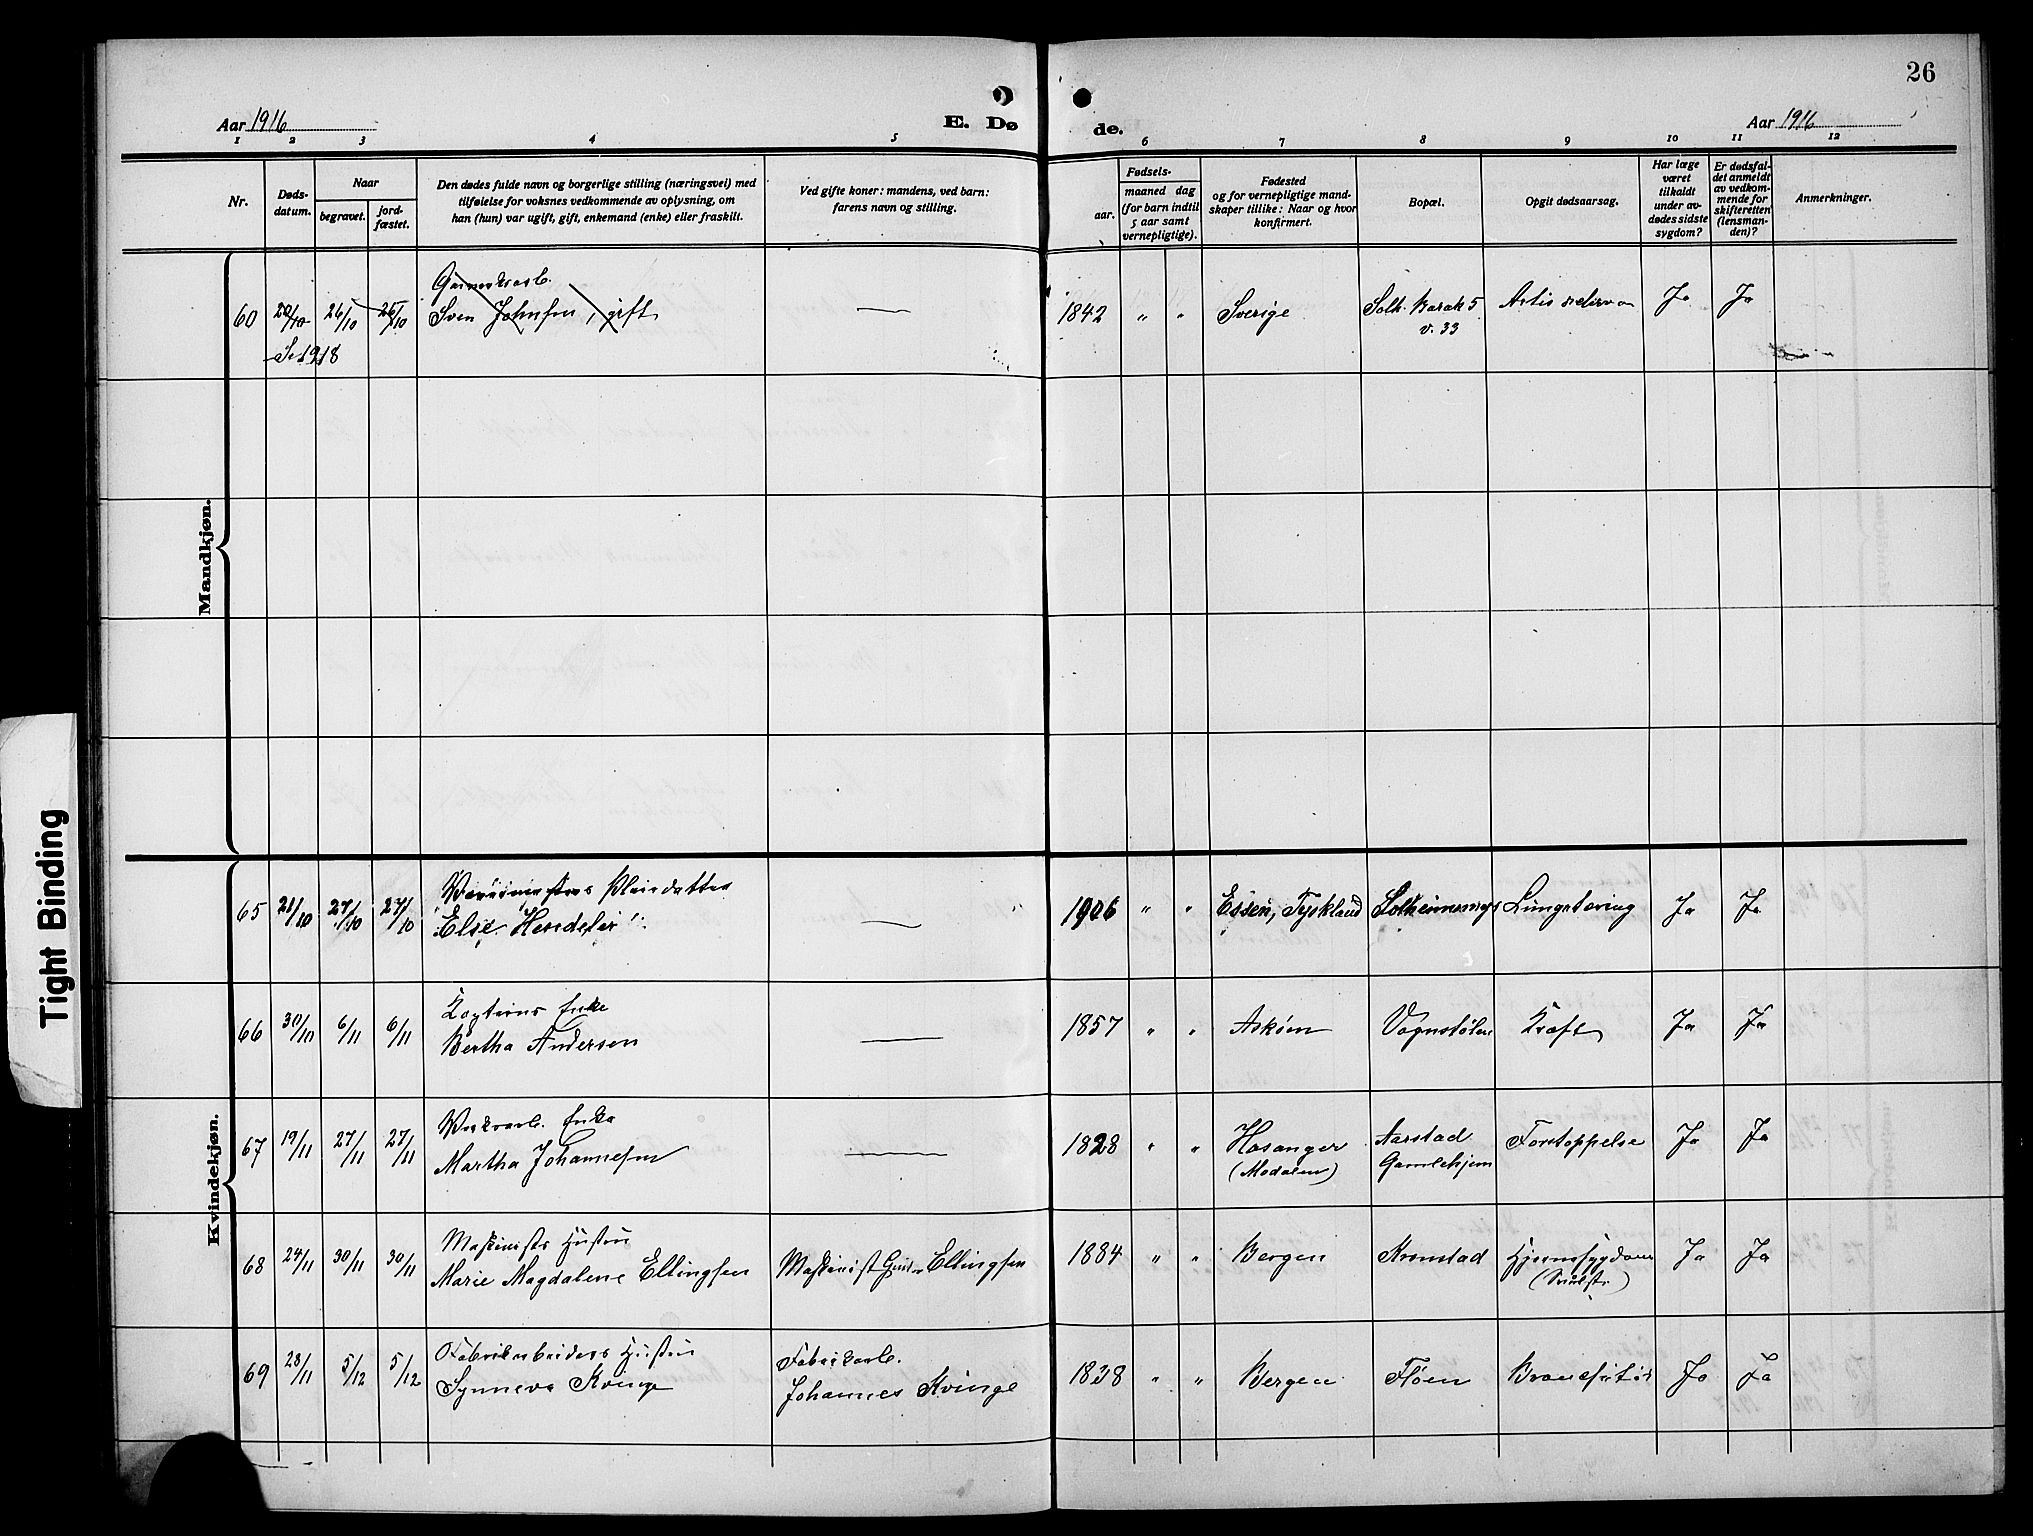 26
Aar 1916
E. Dø
de.
Aar 1916
1 2 3 4 5 6 7 8 9 10 11 12
Nr.
Døds-
datum.
Naar
begravet.
jord-
fæstet.
Den dødes fulde navn og borgerlige stilling (næringsvei) med
tilføielse for voksnes vedkommende av oplysning, om
han (hun) var ugift, gift, enkemand (enke) eller fraskilt.
Ved gifte koner: mandens, ved barn:
farens navn og stilling.
Fødsels-
aar.
maaned dag
(for barn indtil
5 aar samt
vernepligtige).
Fødested
og for vernepligtige mand-
skaper tillike: Naar og hvor
konfirmert.
Bopæl.
Opgit dødsaarsag.
Har læge
været
tilkaldt
under av-
dødes sidste
sygdom?
Er dødsfal-
det anmeldt
av vedkom-
mende for
skifteretten
(lensman-
den)?
Anmerkninger.
Mandkjøn.
60 20/10 26/10 26/10
Sven Johnsen, gift
1842 " " Sverige Solh. Barak 5
v. 33
Ja Ja
S. 1918
Kvindekjøn.
65 21/10 27/10 27/10
Pleiedatter
Else
1906 " " Essen, Tyskland Lungetæring Ja Ja
66 30/10 6/11 6/11
Enke
Bertha Andersen
1857 " " Askøen Vognstølen Kræft Ja Ja
67 19/11 27/11 27/11
Verksarb. Enke
Martha Johannesen
1828 " " Hosanger
(Modalen)
Aarstad
Gamlehjem
Forstoppelse Ja Ja
68 24/11 30/11 30/11
Maskinists Hustru
Marie Magdalene Ellingsen
Maskinist Ellingsen
1884 " " Bergen Kronstad Hjernesygdom
Ja Ja
69 28/11 5/12 5/12
Fabrikarbeiders Hustru
Synneva Kvinge
Fabrikarb.
Johannes Kvinge
1838 " " Bergen Fløen Ja Ja
Tight Binding